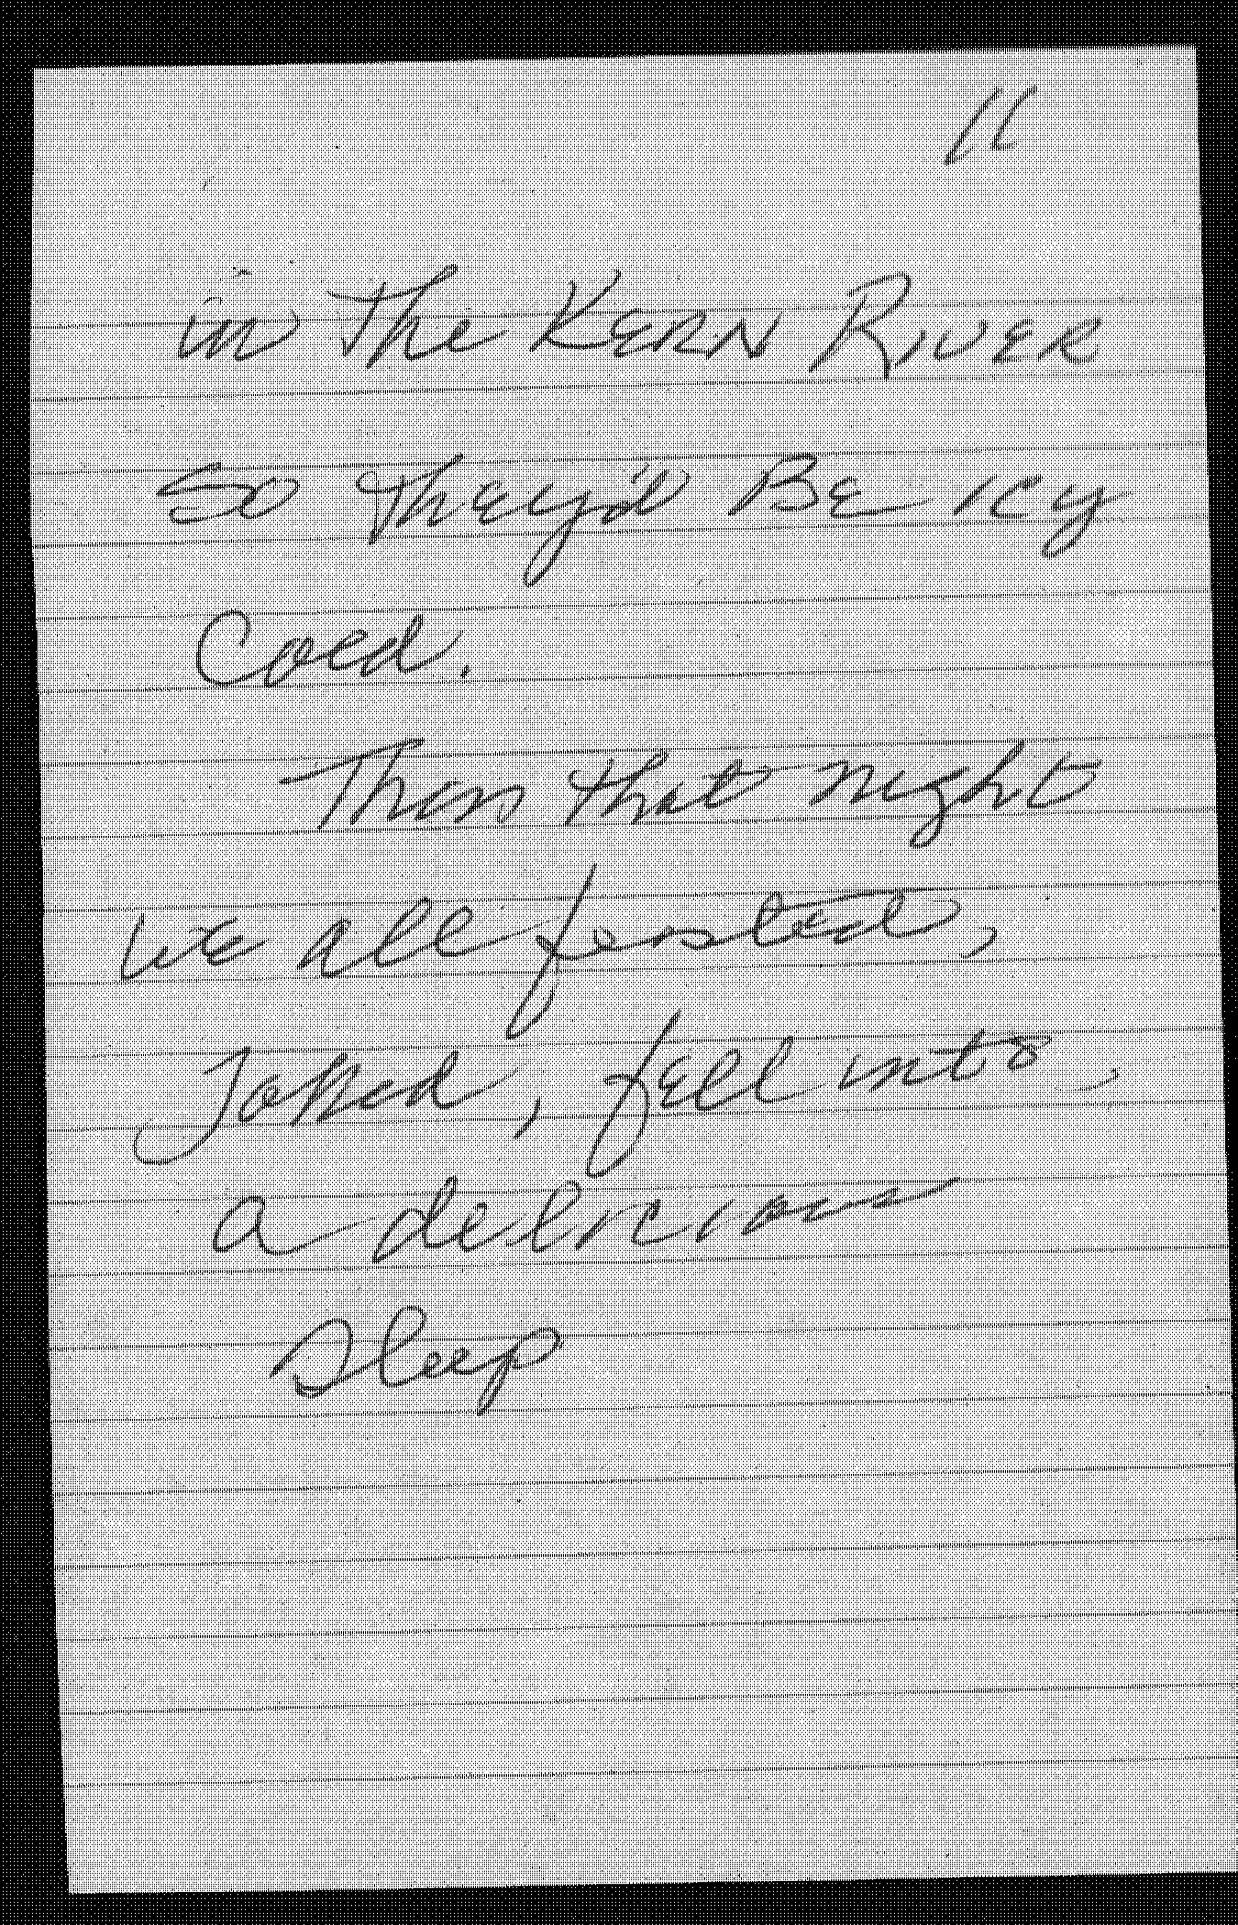 11
in the KERN RIVER
So they'd BE icy
Cold.
Then that night
We all feasted,
Joked, fell into
a delicious
Sleep